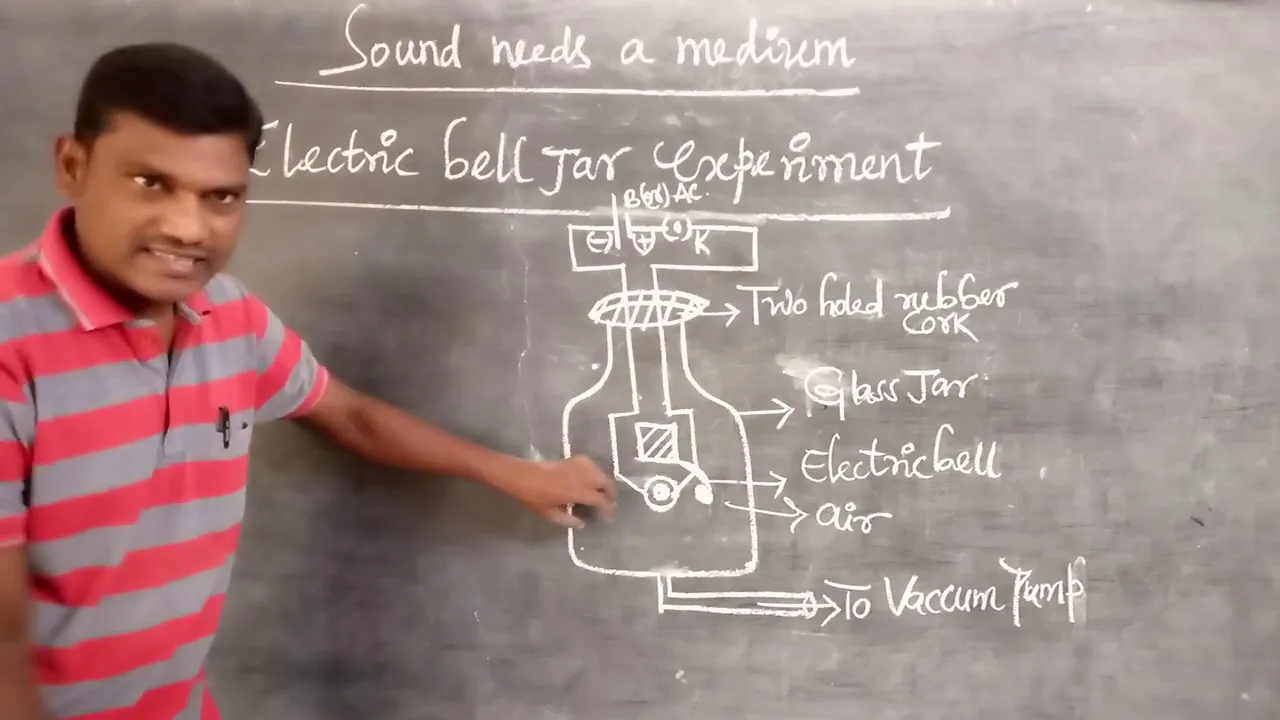 Sound needs a medium
Electric bell Jar Experiment
B(or) AC.
(-) + (•) K
Two holed rubber
cork
Glass Jar
Electric bell
air
To Vaccum Pump